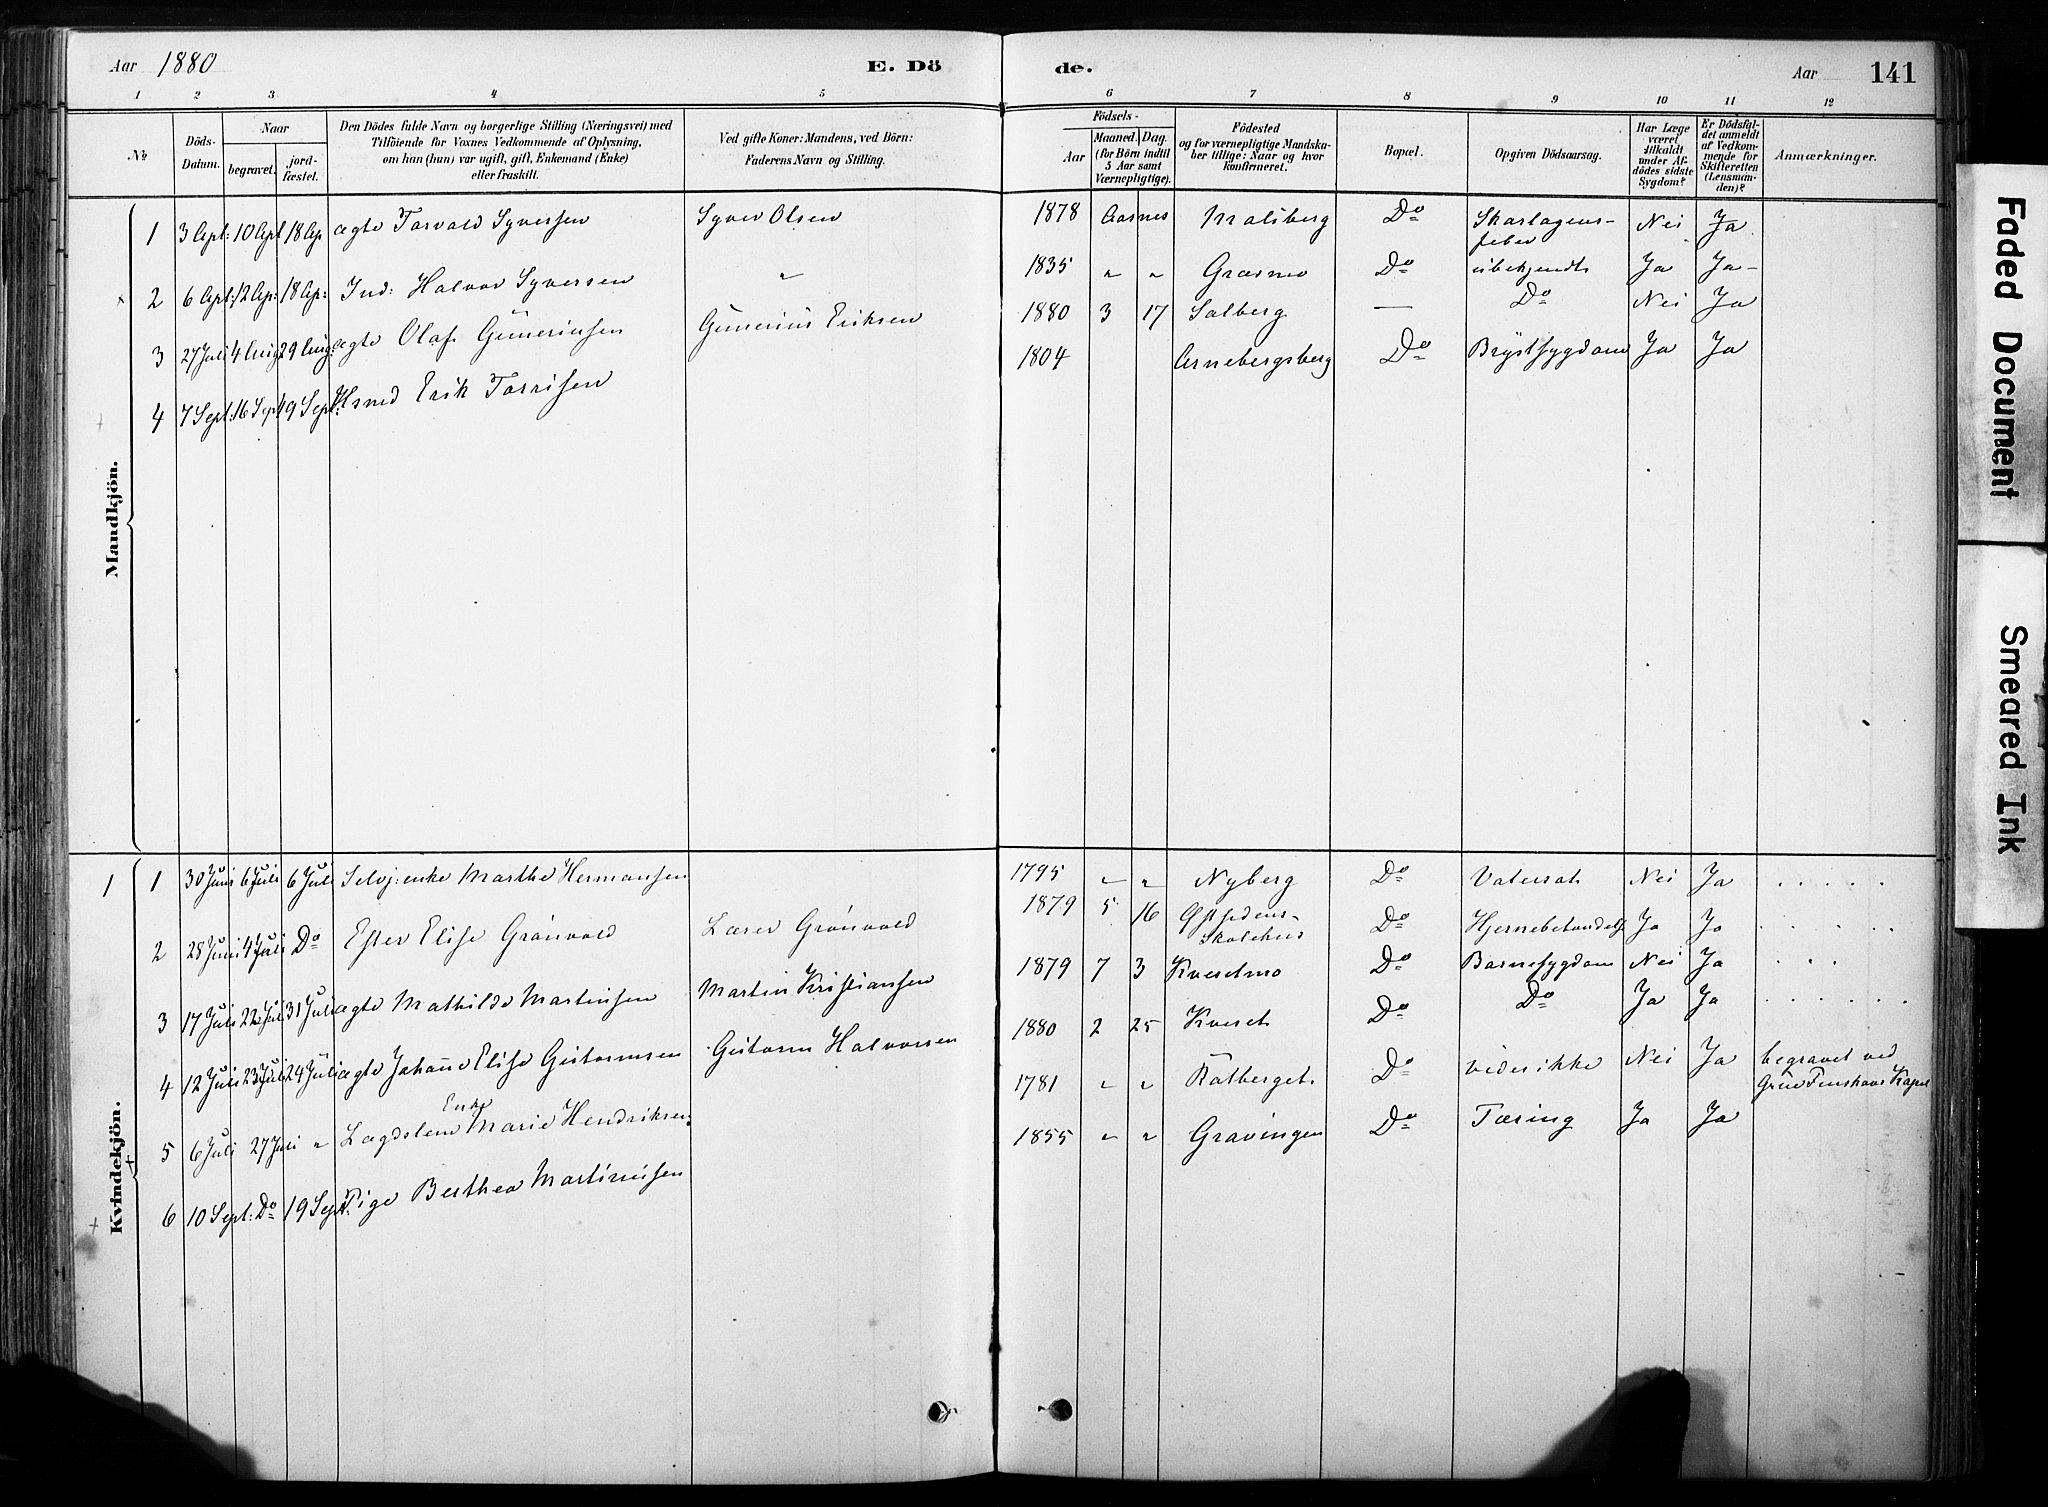 Aar 1880
E. Dö
de.
Aar 141
1 2 3 4 5 6 7 8 9 10 11 12
No.
Döds-Datum.
Naar
begravet.
jord-fæstet.
Den Dödes fulde Navn og borgerlige Stilling (Næringsvei) med
Tilföiende for Voxnes Vedkommende af Oplysning,
om han (hun) var ugift, gift, Enkemand (Enke)
eller fraskilt.
Ved gifte Koner: Mandens, ved Börn:
Faderens Navn og Stilling.
Födsels-
Aar
Maaned. Dag.
(for Börn indtil
5 Aar samt
Værnepligtige).
Födested
og for værnepligtige Mandska-
ber tillige: Naar og hvor
konfirmeret.
Bopæl.
Opgiven Dödsaarsag.
Har Læge
været
tilkaldt
under Af-
dödes sidste
Sygdom?
Er Dödsfal-
det anmeldt
af Vedkom-
mende for
Skifteretten
(Lensman-
den)?
Anmærkninger.
Mandkjön.
1 3 Apl: 10 Apl 18 Ap ægte Torvald Syversen Syver Olsen 1878 Aasnes Malsberg Do Skarlagens-
feber Nei Ja
2 6 Apl: 12 Ap: 18 Ap: Ind: Halvor Syversen " 1835 " " Græsmo Do ubekjendt Ja Ja
3 27 Juli 4 Aug 29 Aug: ægte Olaf Guneriusen Gunerius Eriksen 1880 3 17 Solberg — Do Nei Ja
4 7 Sept: 16 Sept 19 Sept: Hsmd Erik Torrisen 1804 Arnebergsberg Do Brystsygdom Ja Ja
Kvindekjön.
1 1 30 Juni 6 Juli 6 Juli Selvj: enke Marthe Hermansen 1795 " " Nyberg Do Vatersot Nei Ja
2 28 Juni 4 Juli Do Ester Elise Grönvold Lærer Grönvold 1879 5 16 Østsidens-
Skolehus Do Hjernebetændelse Ja Ja
3 17 Juli 22 Juli 31 Juli ægte Mathilde Martinsen Martin Kristiansen 1879 7 3 Kvesetmo Do Barnesygdom Nei Ja
4 12 Juli 23 Juli 24 Juli ægte Johanne Elise Gustavusen Gustavus Halvorsen 1880 2 25 Kveset Do Do Ja Ja
5 6 Juli 27 Juni " Lægdslem Enke Marie Hendriksen 1781 " " Rotberget Do vides ikke Nei Ja begravet ved
Grue Finskovs Kapel
6 10 Sept: Do 19 Sept: Pige Berthea Martinusen 1855 " " Gravingen Do Tæring Ja Ja
Faded Document
Smeared Ink